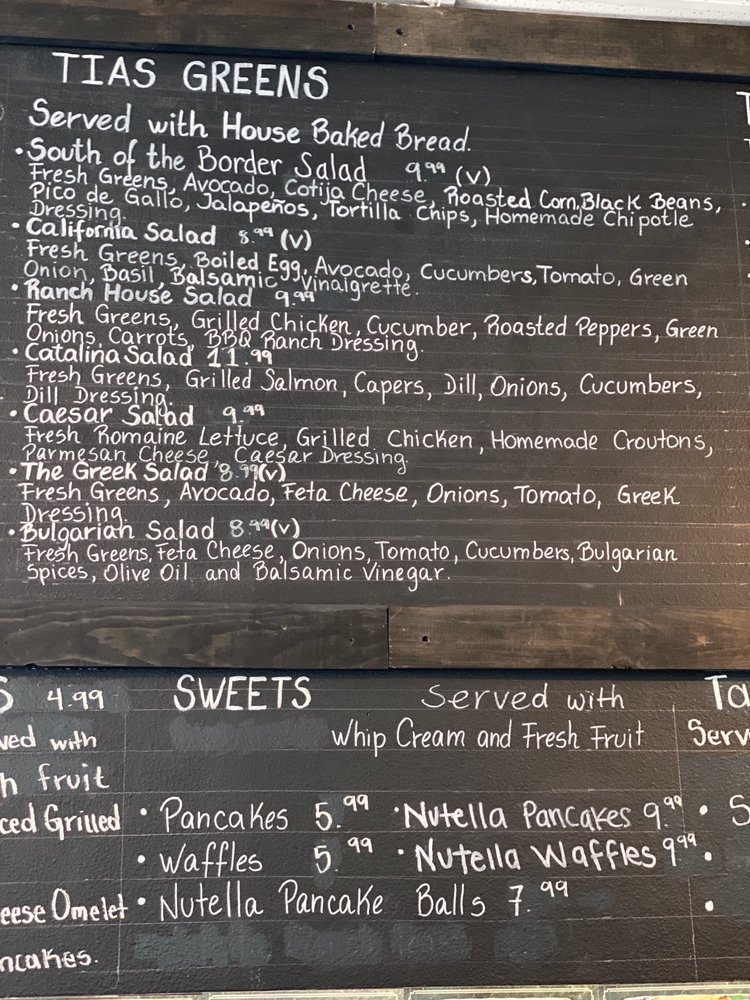 TIAS GREENS
Served with House Baked Bread.
• South of the Border Salad 9.99 (V)
Fresh Greens, Avocado, Cotija Cheese, Roasted Corn, Black Beans,
Pico de Gallo, Jalapeños, Tortilla Chips, Homemade Chipotle
Dressing.
• California Salad 8.99 (V)
Fresh Greens, Boiled Egg, Avocado, Cucumbers, Tomato, Green
Onion, Basil, Balsamic Vinaigrette.
• Ranch House Salad 9.99
Fresh Greens, Grilled Chicken, Cucumber, Roasted Peppers, Green
Onions, Carrots, BBQ Ranch Dressing.
• Catalina Salad 11.99
Fresh Greens, Grilled Salmon, Capers, Dill, Onions, Cucumbers,
Dill Dressing.
• Caesar Salad 9.99
Fresh Romaine Lettuce, Grilled Chicken, Homemade Croutons,
Parmesan Cheese, Caesar Dressing.
• The Greek Salad 8.99 (V)
Fresh Greens, Avocado, Feta Cheese, Onions, Tomato, Greek
Dressing
• Bulgarian Salad 8.99 (V)
Fresh Greens, Feta Cheese, Onions, Tomato, Cucumbers, Bulgarian
Spices, Olive Oil and Balsamic Vinegar.
S 4.99
ved with
h fruit
ced Grilled
eese Omelet
ncakes.
SWEETS Served with
Whip Cream and Fresh Fruit
• Pancakes 5.99 • Nutella Pancakes 9.99
• Waffles 5.99 • Nutella Waffles 9.99
• Nutella Pancake Balls 7.99
Ta
Serv
• S
•
•